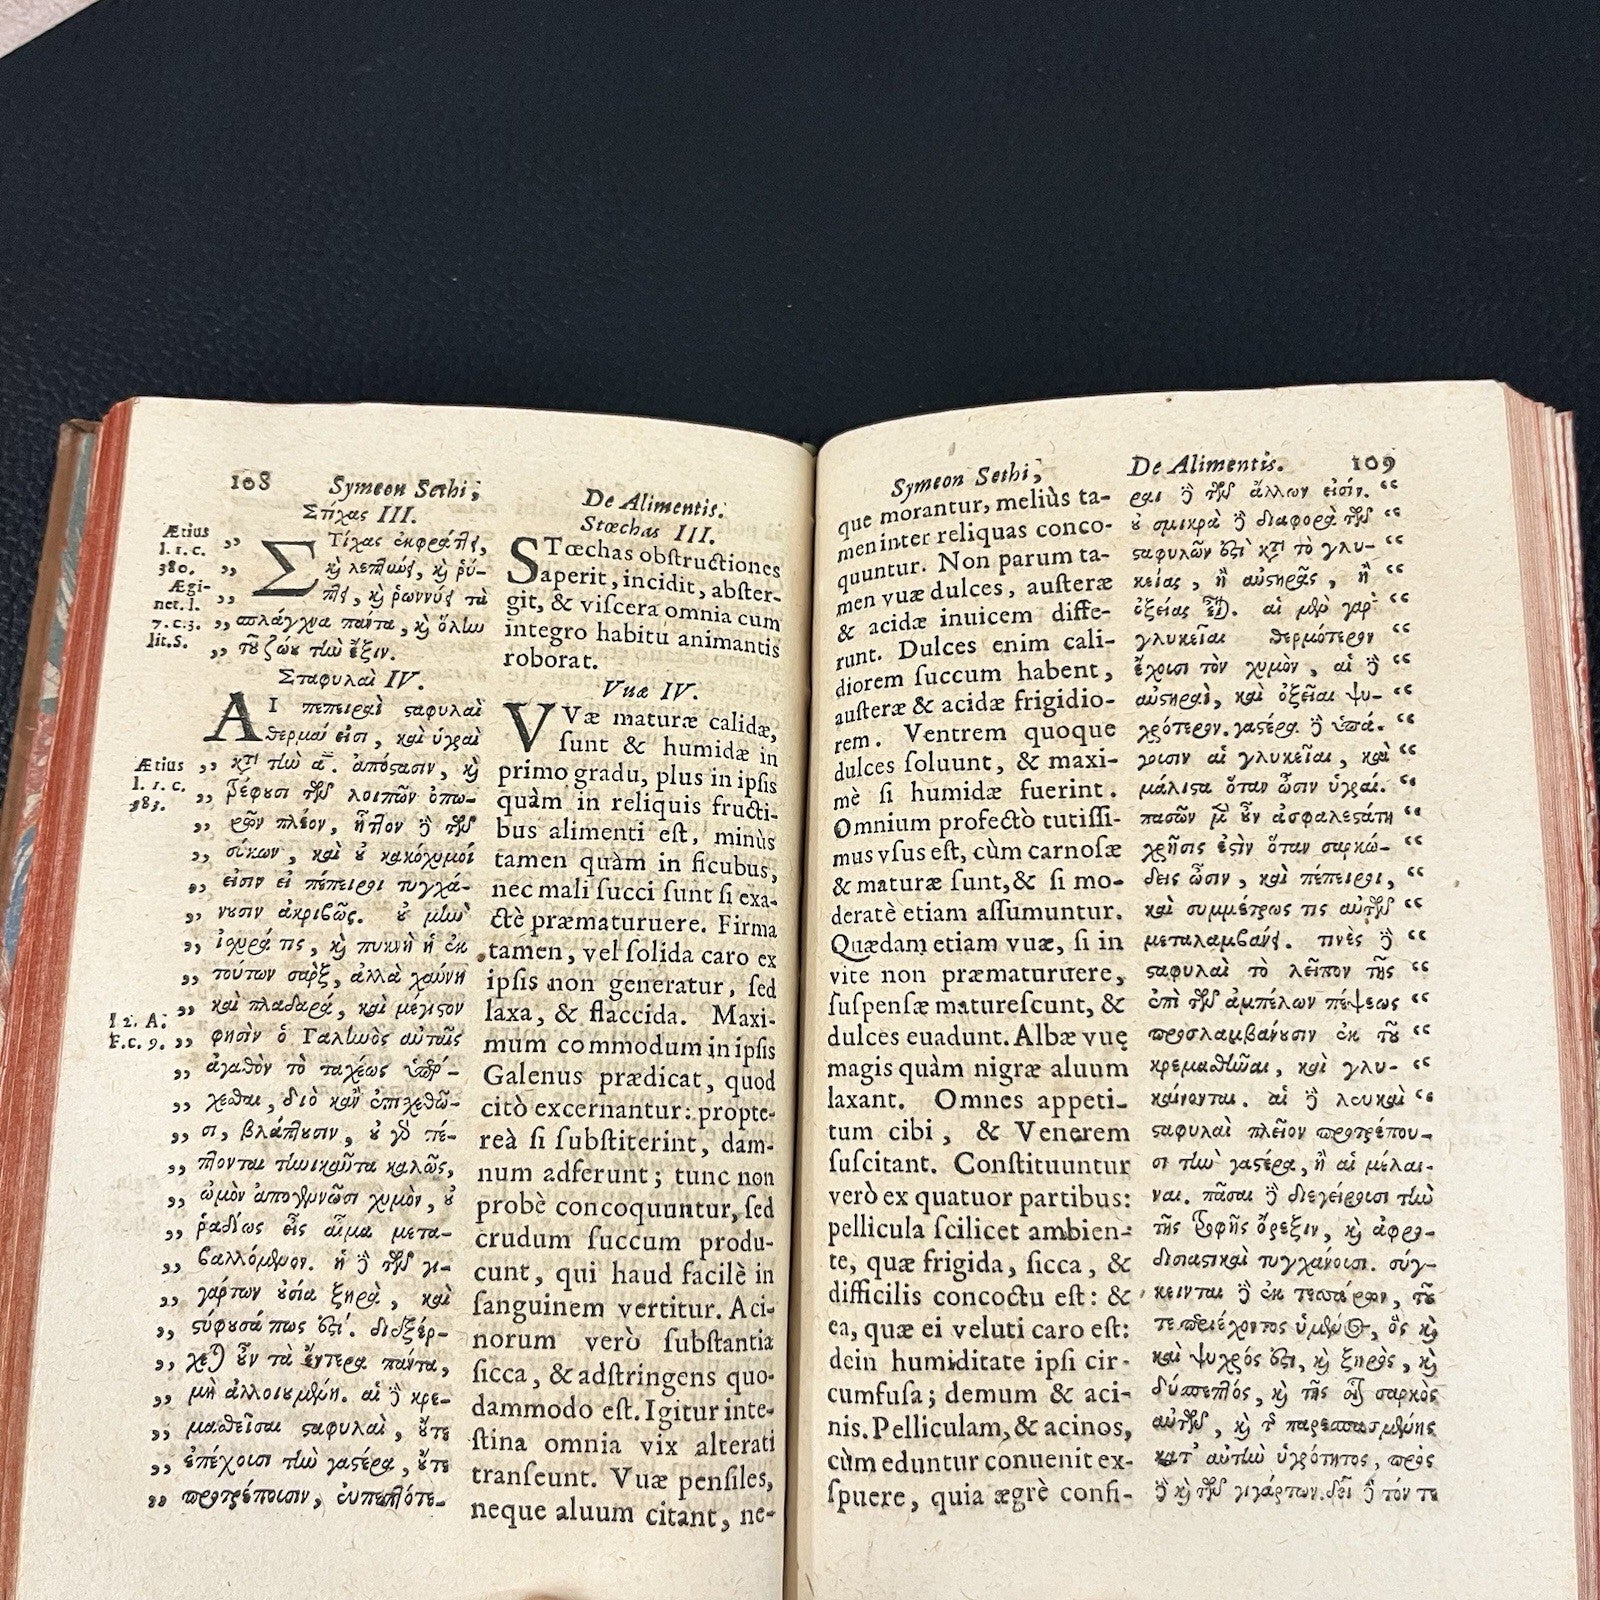 108 Symeon Sethi;
Στίχας III.
ΣΤίχας ἐκφράττει,
καὶ λεπτύνει, καὶ ῥύ-
πτει, καὶ ῥωννύει τὰ
σπλάγχνα πάντα, καὶ ὅλην
τοῦ ζώου τὴν ἕξιν.
Σταφυλαὶ IV.
ΑΙ πέπειροι σταφυλαὶ
θερμαί εἰσι, καὶ ὑγραὶ
κατὰ τὴν α. ἀπόστασιν, καὶ
τρέφουσι τῶν λοιπῶν ὀπω-
ρῶν πλέον, ἧττον δὲ τῶν
σύκων, καὶ οὐ κακόχυμοί
εἰσιν εἰ πέπειροι τυγχά-
νουσιν ἀκριβῶς. οὐ μὴν
ἰσχυρά τις, καὶ πυκνὴ ἡ ἐκ
τούτων σὰρξ, ἀλλὰ χαύνη
καὶ πλαδαρά, καὶ μέγιστον
φησὶν ὁ Γαληνὸς αὐταῖς
ἀγαθὸν τὸ ταχέως ὑπέρ-
χεσθαι, διὸ κἂν ἐπισχεθῶ-
σι, βλάπτουσιν, οὐ γὰρ πέ-
πτονται τηνικαῦτα καλῶς,
ὠμὸν ἀπογεννῶσι χυμὸν, οὐ
ῥαδίως εἰς αἷμα μετα-
βαλλόμενον. ἡ δὲ τῶν γι-
γάρτων οὐσία ξηρὰ, καὶ
στύφουσά πως ἐστί. διεξέρ-
χεται οὖν τὰ ἔντερα πάντα,
μὴ ἀλλοιουμένη. αἱ δὲ κρε-
μασθεῖσαι σταφυλαὶ, οὔτε
ἐπέχουσι τὴν γαστέρα, οὔτε
προτρέπουσιν, εὐπεπτότε-
Ætius
l. 1. c.
380.
Ægi-
net. l.
7. c. 3.
lit. S.
Ætius
l. 1. c.
383.
l 2. A.
F. c. 9.
De Alimentis.
Stœchas III.
STœchas obſtructiones
aperit, incidit, abſter-
git, & viſcera omnia cum
integro habitu animantis
roborat.
Vuæ IV.
VVæ maturæ calidæ,
ſunt & humidæ in
primo gradu, plus in ipſis
quàm in reliquis fructi-
bus alimenti eſt, minùs
tamen quàm in ficubus,
nec mali ſucci ſunt ſi exa-
ctè præmaturuere. Firma
tamen, vel ſolida caro ex
ipſis non generatur, ſed
laxa, & flaccida. Maxi-
mum commodum in ipſis
Galenus prædicat, quod
citò excernantur: propte-
reà ſi ſubſtiterint, dam-
num adferunt; tunc non
probè concoquuntur, ſed
crudum ſuccum produ-
cunt, qui haud facilè in
ſanguinem vertitur. Aci-
norum verò ſubſtantia
ſicca, & adſtringens quo-
dammodo eſt. Igitur inte-
ſtina omnia vix alterati
tranſeunt. Vuæ penſiles,
neque aluum citant, ne-
Symeon Sethi,
que morantur, meliùs ta-
men inter reliquas conco-
quuntur. Non parum ta-
men vuæ dulces, auſteræ
& acidæ inuicem diffe-
runt. Dulces enim cali-
diorem ſuccum habent,
auſteræ & acidæ frigidio-
rem. Ventrem quoque
dulces ſoluunt, & maxi-
mè ſi humidæ fuerint.
Omnium profectò tutiſſi-
mus vſus eſt, cùm carnoſæ
& maturæ ſunt, & ſi mo-
deratè etiam aſſumuntur.
Quædam etiam vuæ, ſi in
vite non præmaturuere,
ſuſpenſæ matureſcunt, &
dulces euadunt. Albæ vuę
magis quàm nigræ aluum
laxant. Omnes appeti-
tum cibi, & Venerem
ſuſcitant. Conſtituuntur
verò ex quatuor partibus:
pellicula ſcilicet ambien-
te, quæ frigida, ſicca, &
difficilis concoctu eſt: &
ea, quæ ei veluti caro eſt:
dein humiditate ipſi cir-
cumfuſa; demum & aci-
nis. Pelliculam, & acinos,
cùm eduntur conuenit ex-
ſpuere, quia ægrè confi-
De Alimentis. 109
ραι δὲ τῶν ἄλλων εἰσίν.
οὐ σμικρὰ δὲ διαφορὰ τῶν
σταφυλῶν ἐστὶ κατὰ τὸ γλυ-
κείας, ἢ αὐστηρᾶς, ἢ
ὀξείας εἶναι. αἱ μὲν γὰρ
γλυκεῖαι θερμότερον
ἔχουσι τὸν χυμὸν, αἱ δὲ
αὐστηραὶ, καὶ ὀξεῖαι ψυ-
χρότερον. γαστέρα δὲ ὑπά-
γουσιν αἱ γλυκεῖαι, καὶ
μάλιστα ὅταν ὦσιν ὑγραί.
πασῶν μὲν οὖν ἀσφαλεστάτη
χρῆσις ἐστὶν ὅταν σαρκώ-
δεις ὦσιν, καὶ πέπειροι,
καὶ συμμέτρως τις αὐτῶν
μεταλαμβάνει. τινὲς δὲ
σταφυλαὶ τὸ λεῖπον τῆς
ἐπὶ τῶν ἀμπέλων πέψεως
προσλαμβάνουσιν ἐκ τοῦ
κρεμασθῆναι, καὶ γλυ-
καίνονται. αἱ δὲ λευκαὶ
σταφυλαὶ πλεῖον προτρέπου-
σι τὴν γαστέρα, ἢ αἱ μέλαι-
ναι. πᾶσαι δὲ διεγείρουσι τὴν
τῆς τροφῆς ὄρεξιν, καὶ ἀφρο-
δισιαστικαὶ τυγχάνουσι. σύγ-
κεινται δὲ ἐκ τεσσάρων, τοῦ
τε περιέχοντος ὑμένος, ὃς καὶ
καὶ ψυχρός ἐστι, καὶ ξηρὸς, καὶ
δύσπεπτός, καὶ τῆς οἷον σαρκὸς
αὐτῶν, καὶ τῆς παρεσπασμένης
κατ' αὐτὴν ὑγρότητος, πρὸς
δὲ καὶ τῶν γιγάρτων. δεῖ δὲ τόν τε